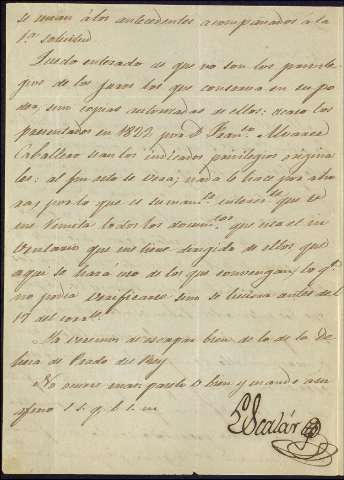 se unan á los antecedentes acompañados á la
1.ª solicitud
Quedo enterado de que no son los privile-
gios de los juros los que conserva en su po
der, sino copias autorizadas de ellos: acaso los
presentados en 1822 por D. Fran.co Alvarez
Caballero serían los indicados privilegios origina
les: al fin esto se verá; nada le hace por aho
ra; por lo que es suman.te que se
me remita todos los docum.tos que cita el in
ventario que me tiene dirigido de ellos que
aquí se hará uso de los que convengan, lo q.e
no podía verificarse sino se hiciera antes del
17 del corr.te
Ya veremos de escapar bien de lo de la De
hesa de Prado del Rey
No ocurre mas; páselo V. bien y mande á su
afmo S. S. q. b. s. m.
Escalár